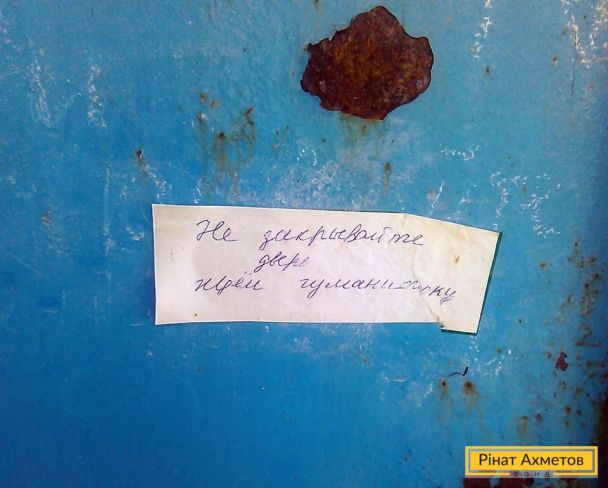 Не закрывайте
дверь
ждём гуманитарку
Рінат Ахметов
ФОНД